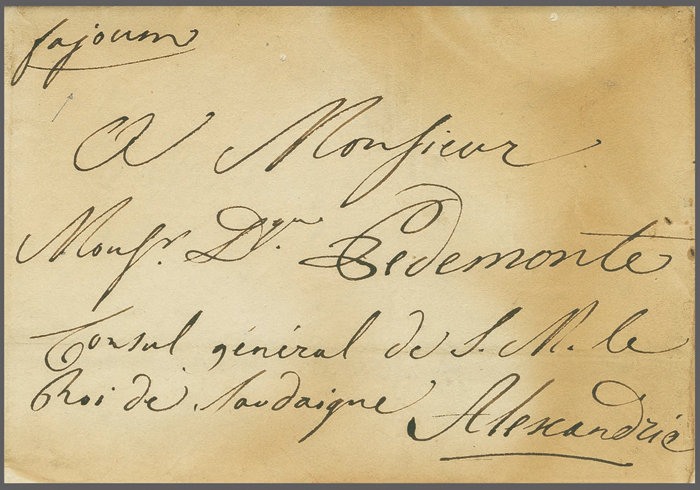 fajoum
A Monsieur
Monsr. Dque. Pedemonte
Consul général de S. M. le
Roi de Sardaigne Alexandrie